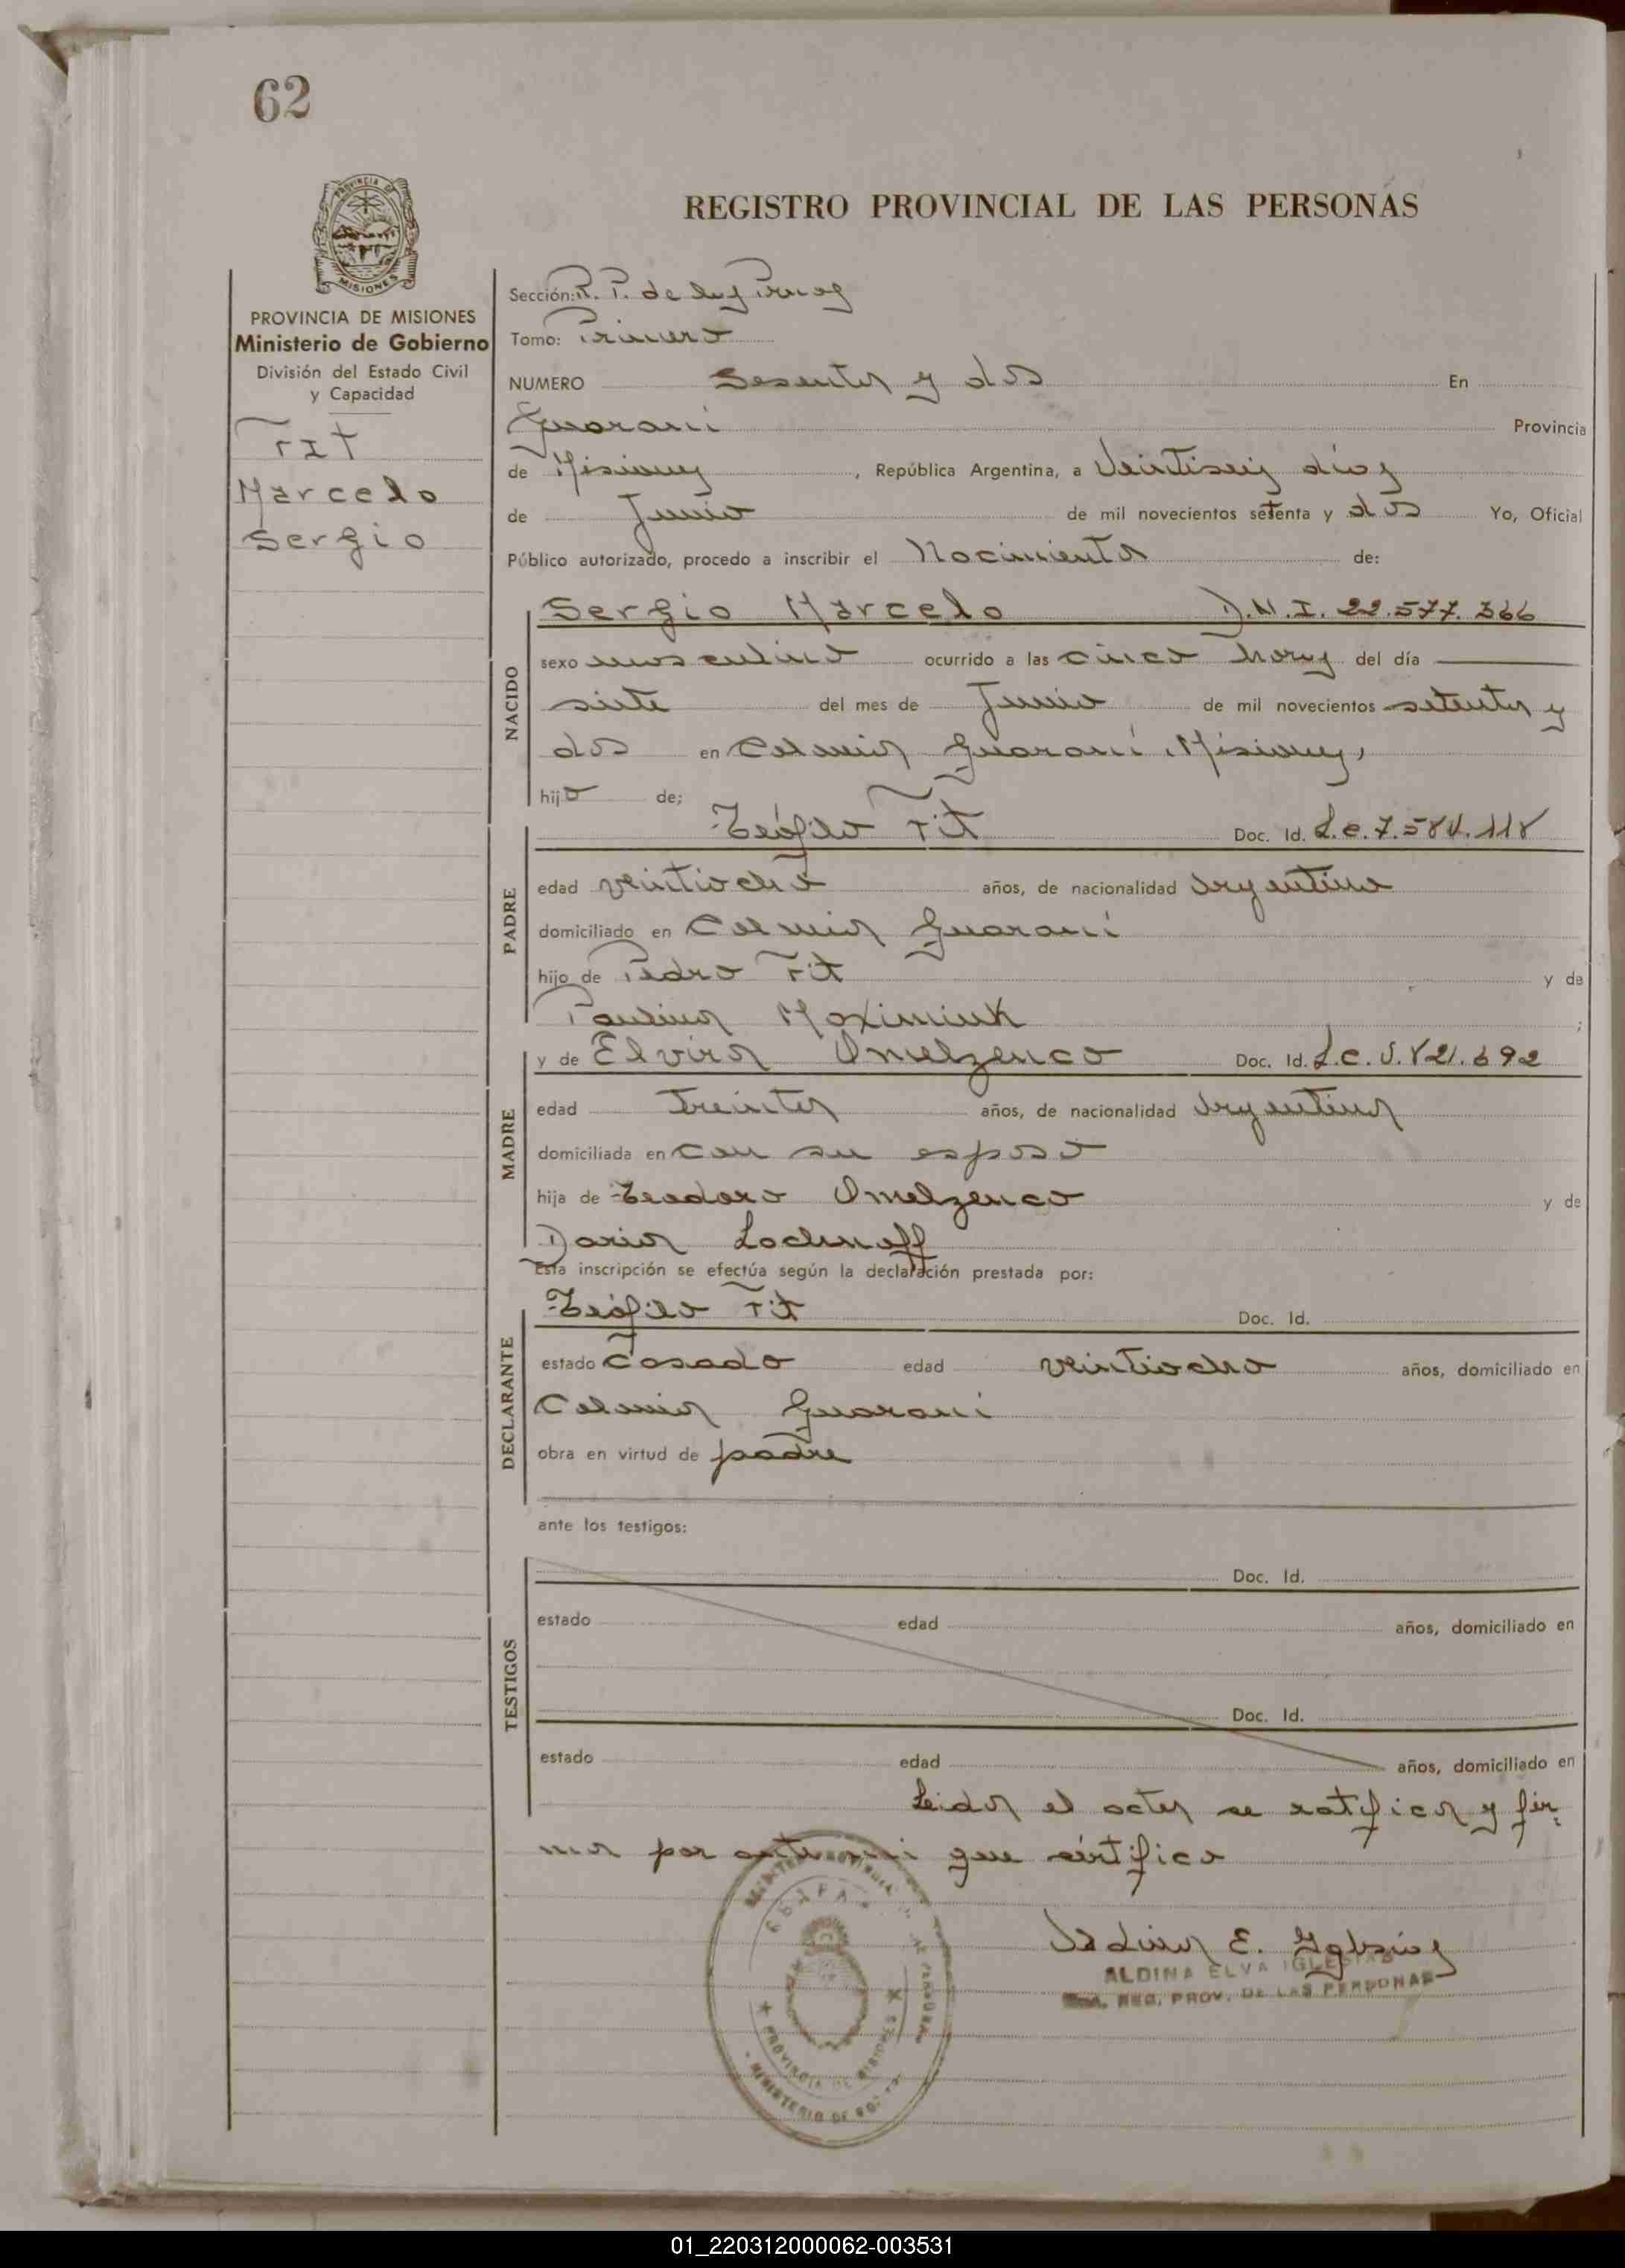 62
REGISTRO PROVINCIAL DE LAS PERSONAS
PROVINCIA DE MISIONES
Ministerio de Gobierno
División del Estado Civil
y Capacidad
Fit
Marcelo
Sergio
Sección: R. P. de las
Tomo: Primero
NUMERO Sesenta y dos En
Guaraní Provincia
de Misiones, República Argentina, a Veintiseis días
de Junio de mil novecientos setenta y dos Yo, Oficial
Público autorizado, procedo a inscribir el Nacimiento de:
NACIDO
Sergio Marcelo D.N.I. 22.577.366
sexo masculino ocurrido a las cinco horas del día
siete del mes de Junio de mil novecientos setenta y
dos en Colonia Guaraní, Misiones,
hijo de;
PADRE
Teófilo Fit Doc. Id. L.e. 7.584.118
edad veintiocho años, de nacionalidad Argentina
domiciliado en Colonia Guaraní
hijo de Pedro Fit y de
Paulina Maximiuk ;
MADRE
y de Elvira Omelzenco Doc. Id. L.C. 5.821.692
edad treinta años, de nacionalidad Argentina
domiciliada en con su esposo
hija de Teodoro Omelzenco y de
Daria
Esta inscripción se efectúa según la declaración prestada por:
DECLARANTE
Teófilo Fit Doc. Id.
estado Casado edad veintiocho años, domiciliado en
Colonia Guaraní
obra en virtud de padre
ante los testigos:
TESTIGOS
Doc. Id.
estado edad años, domiciliado en
Doc. Id.
estado edad años, domiciliado en
Leida el acta se ratifica y fir-
ma por ante mi que certifico
Aldina E. Iglesias
ALDINA ELVA IGLESIAS
REG. PROV. DE LAS PERSONAS
PROVINCIA DE MISIONES
MINISTERIO DE
01_220312000062-003531